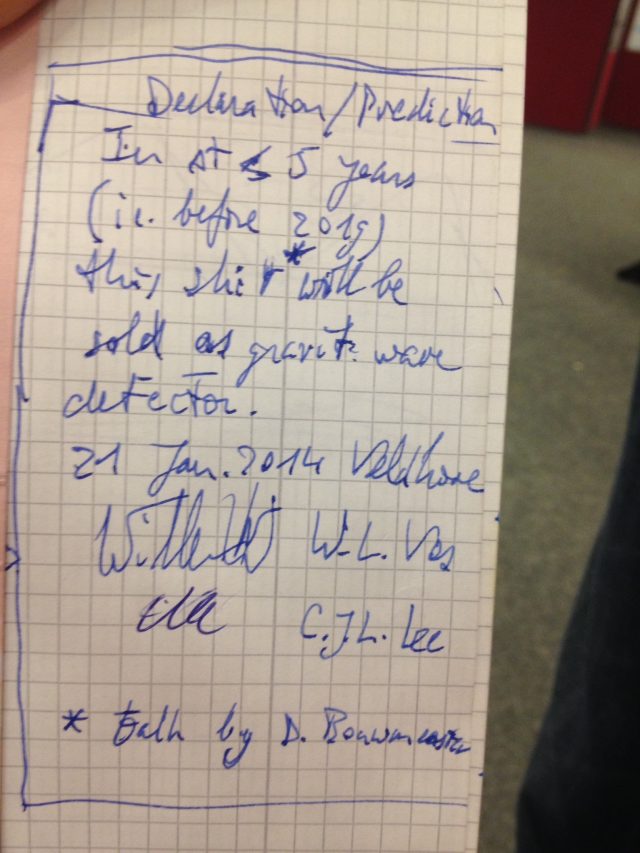 Declaration/Prediction
In ΔT ≤ 5 years
(i.e. before 2019)
this shit* will be
sold as gravit. wave
detector.
21 Jan. 2014 Veldhove
W.L. Vos
C.J.L. Lee
* talk by D. Bouwmeester